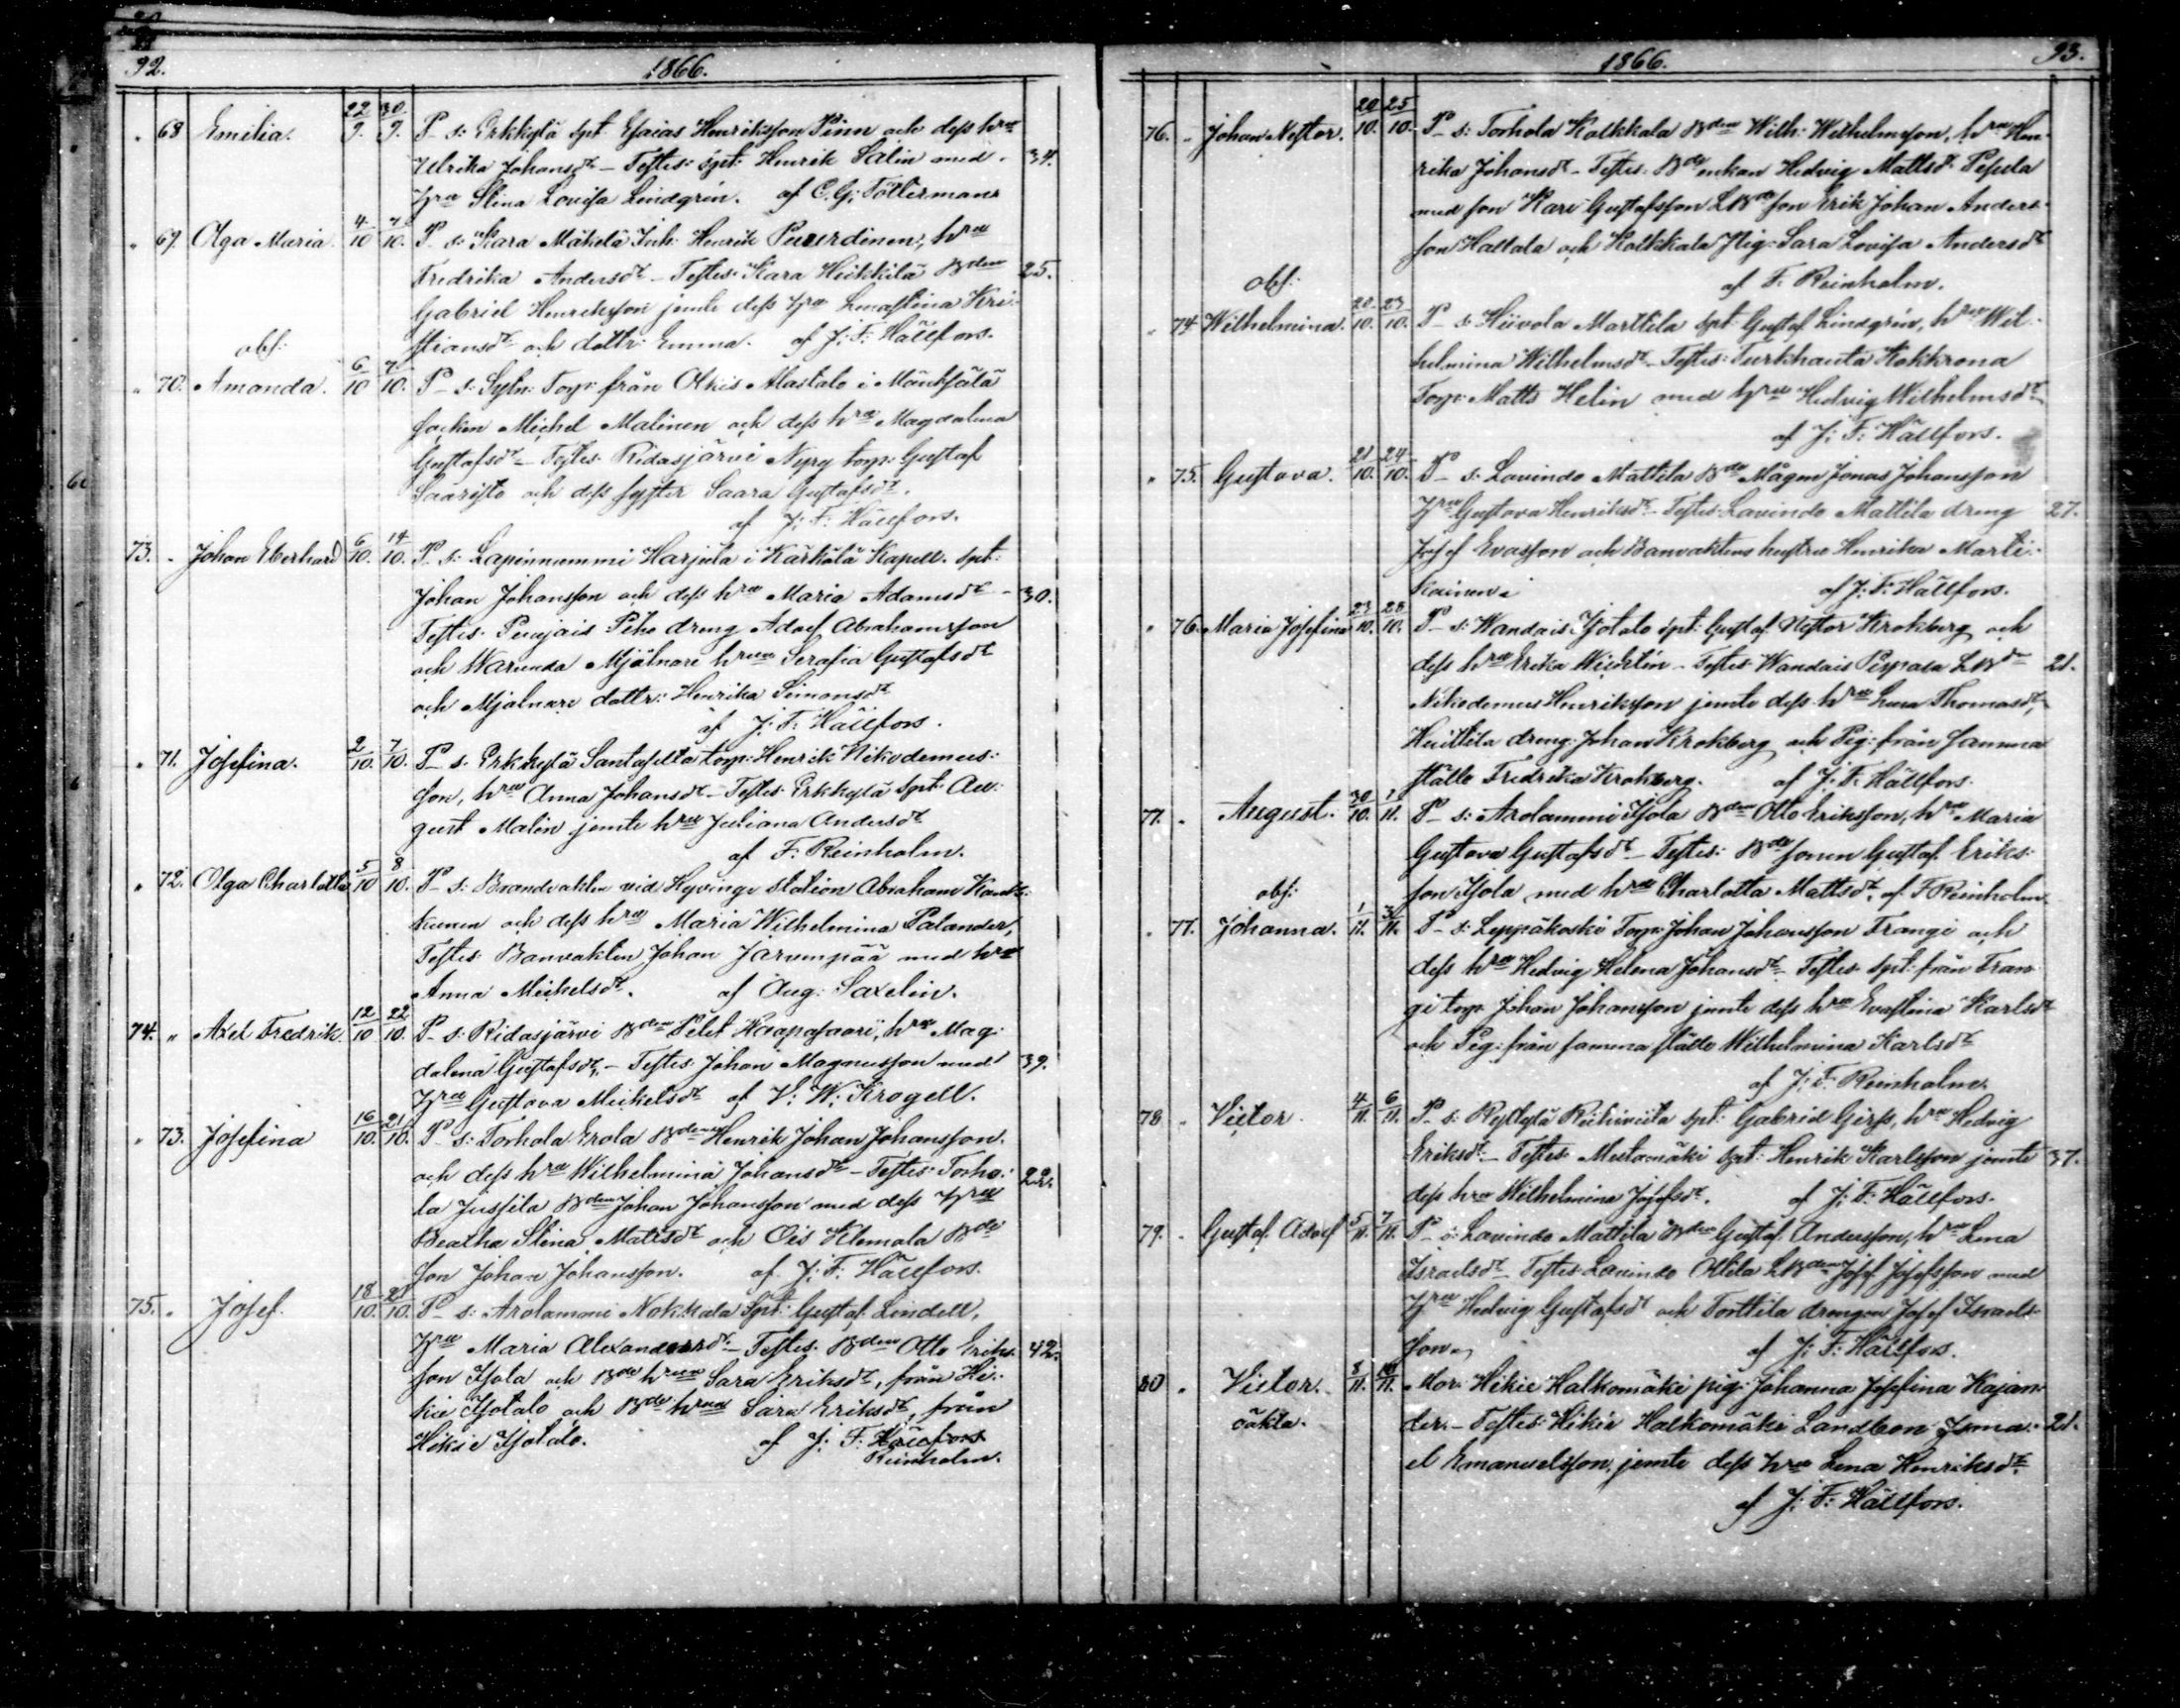 92. 1866.
" 68 Emilia. 22/9. 30/9. P_ s: Erkkylä Spt Esaias Henriksson Pinn och dess hru
Ulrika Johansdr – Testes: Spt: Henrik Salin med 34.
hru Stina Lovisa Lindgrén. af C. G: Töttermans
" 69. Olga Maria. 4/10 7/10. P_ s: Kara Mäkelä Inh: Henrik Puurdinen, hru
Fredrika Andersdr – Testes: Kara Heikkilä Bden 25.
Gabriel Henriksson jemte dess hru Lenastina Kri-
obs: stiansdr och dottr: Emma. af J: F: Hällfors.
" 70. Amanda. 6/10 7/10. P_ s: Sytn: Torp: från Olkis Alastalo i Mäntsälä
socken Michel Malinen och dess hru Magdalena
Gustafsdr – Testes: Ridasjärvi Nyry torp: Gustaf
Saaristo och dess syster Saara Gustafsdr.
af J: F: Hällfors.
73. " Johan Eberhard 6/10. 14/10. P_ s: Lapinnummi Harjula i Kärkölä Kapell. Spt:
Johan Johansson och dess hru Maria Adamsdr – 30.
Testes: Puujais Peho dreng Adolf Abrahamsson
och Warunda Mjölnare hrun Serafia Gustafsdr
och Mjölnare dottr: Henrika Simonsdr
af J: F: Hällfors.
" 71. Josefina. 2/10. 7/10. P_ s: Erkkylä Santapelto torp: Henrik Nikodemus:
son, hru Anna Johansdr – Testes: Erkkylä Spt Au:
gust Malin jemte hru Juliana Andersdr
af F: Reinholm.
" 72. Olga Charlotta 5/10 8/10. P_ s: Banvakten vid Hyvinge station Abraham
kunen och dess hru Maria Wilhelmina Palander,
Testes: Banvakten Johan Järvenpää med hru
Anna Mickelsdr. af Aug: Saxelin.
74. " Axel Fredrik. 12/10 22/10. P_ s: Ridasjärvi Bden Petet Haapasaari, hru Mag:
dalena Gustafsdr, – Testes: Johan Magnusson med 39.
hru Gustava Mickelsdr af V: W: Krogell.
" 73. Josefina 16/10. 21/10. P_ s: Torhola Erola Bden Henrik Johan Johansson.
och dess hru Wilhelmina Johansdr – Testes: Torho: 22.
la Jussila Bden Johan Johansson med dess hru
Beatha Stina Mattsdr och Ois Klemola Bde
son Johan Johansson. af J: F: Hällfors.
75. " Josef. 18/10. 21/10. P_ s: Arolammi Nokkala Spt: Gustaf Lindell,
hru Maria Alexandersdr – Testes: Bden Otto Eriks: 42.
son Isola och Bde hrun Sara Eriksdr, från Hi:
kie Isotalo och Bde hrun Sara Eriksdr, från
Hikie Isotalo. af J: F: Hällfors
Reinholm.
1866. 93.
76. " Johan Nestor. 20/10. 25/10. P_ s: Torhola Kolkkala Bden Wilh: Wilhelmsson, hru Hen-
rika Johansdr – Testes: Bde enkan Hedvig Mattsdr Pesula
med son Karl Gustafsson LBde son Erik Johan Anders-
son Hattala och Kolkkala Pig: Sara Lovisa Andersdr
obs: af F. Reinholm.
" 74 Wilhelmina. 20/10. 23/10. P_ s: Hiivola Marttila Spt: Gustaf Lindgrén, hru Wil-
helmina Wilhelmsdr – Testes: Turkhauta Kokkrona
Torp: Matts Helin med hru Hedvig Wilhelmsdr
af J: F: Hällfors.
" 75. Gustava. 21/10. 24/10. P_ s: Lavindo Mattila Bde Mågen Jonas Johansson
hru Gustava Henriksdr – Testes: Lavindo Mattila dreng 27.
Josef Evasson och Banvaktens hustru Henrika Marti-
kainen. af J: F: Hällfors.
" 76. Maria Josefina 23/10. 28/10. P_ s: Wandais Isotalo Spt: Gustaf Nestor Krokberg och
dess hru Erika Wichtin – Testes: Wandais Pispala LBde 21.
Nikodemus Henriksson jemte dess hru Lena Thomasdr,
Huittila dreng: Johan Krokberg och Pig: från samma
ställe Fredrika Krokberg. af J: F: Hällfors.
77. " August. 30/10. /11. P_ s: Arolammi Isola Bden Otto Eriksson, hru Maria
Gustava Gustafsdr – Testes: Bde sonen Gustaf Eriks:
obs: son Isola med hru Charlotta Mattsdr. af F. Reinholm.
" 77. Johanna. 1/11. 3/11. P_ s: Leppäkoski Torp: Johan Johansson Frangi och
dess hru Hedvig Helena Johansdr – Testes: Spt: från Fran-
gi torp Johan Johansson jemte dess hru Evastina Karlsdr
och Pig: från samma ställe Wilhelmina Karlsdr
af J: F: Reinholm.
78 " Victor. 4/11. 6/11. P_ s: Ryttylä Riihiviita Spt: Gabriel Girss, hru Hedvig
Eriksdr – Testes: Mustamäki Spt: Henrik Karlsson jemte 37.
dess hru Wilhelmina Josefsdr. af J: F: Hällfors.
79. " Gustaf Adolf 5/11. 7/11. P_ s: Lavindo Mattila Bden Gustaf Andersson, hru Lena
Israelsdr – Testes: Lavindo Ottila LBden Josef Josefsson med
hru Hedvig Gustafsdr och Torttila drengen Josef Israels-
son. af J: F: Hällfors.
80 " Victor. 8/11. 10/11. Mor: Hikie Halkomäki pig: Johanna Josefina Kajan-
oäkta. der. – Testes: Hikie Halkomäki Landbon Isma- 21.
el Emanuelsson, jemte dess hru Lena Henriksdr.
af J: F: Hällfors.